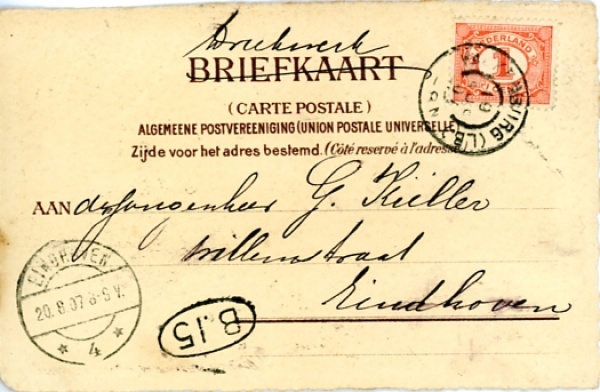 Drukwerk
BRIEFKAART
(CARTE POSTALE)
ALGEMEENE POSTVEREENIGING (UNION POSTALE UNIVERSELLE)
Zijde voor het adres bestemd. (Côté reservé à l'adresse
NEDERLAND
1
AAN de jongenheer G. Kieller
Willemstraat
Eindhoven
EINDHOVEN
20.8.07 8-9 V.
4
B.15